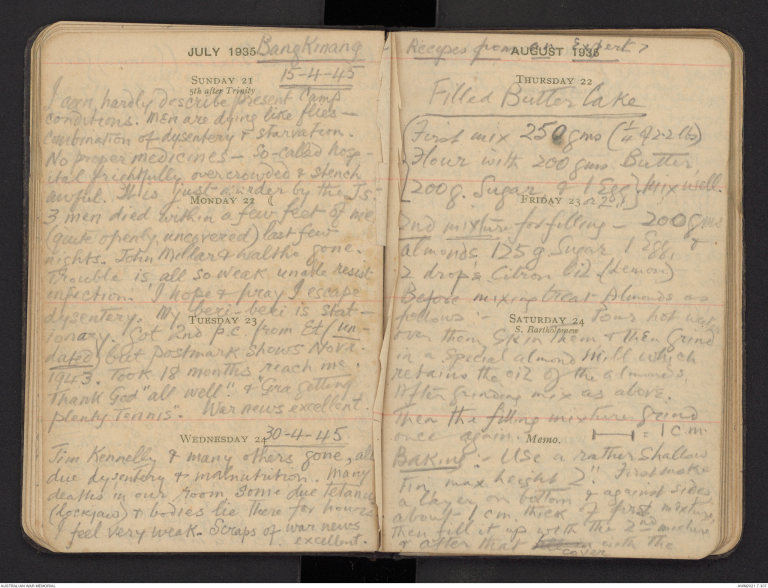 JULY 1935 Bangkinang
SUNDAY 21 15-4-45
5th after Trinity
I can hardly describe present Camp
conditions. Men are dying like flies —
Combination of dysentery & starvation.
No proper medicines — So-called hosp-
ital frightfully overcrowded & stench
awful. It is just murder by the Js.
MONDAY 22
3 men died within a few feet of me
(quite openly, uncovered) last few
nights. John Millar & Waltho gone.
Trouble is all so weak unable resist
infection. I hope & pray I escape
dysentery. My beri-beri is stat-
TUESDAY 23
ionary. Got 2nd p.c. from Et (un-
dated) but postmark shows Novr.
1943. Took 18 months reach me.
Thank God "all well". & "Gra getting
plenty Tennis". War news excellent.
WEDNESDAY 24 30-4-45
Jim Kennelly & many others gone, all
due dysentery & malnutrition. Many
deaths in our room some due tetanus
(lockjaw) & bodies lie there for hours
I feel very weak. Scraps of war news
excellent.
Recipes from an Expert
AUGUST 1935
THURSDAY 22
Filled Butter Cake
First mix 250 gms (¼ of 2.2 lbs)
Flour with 200 gms. Butter
200 g. Sugar & 1 Egg Mix well.
FRIDAY 23
2nd mixture for filling — 200 gms
almonds 125 g Sugar 1 Egg, &
2 drops Citron Oil (Lemon)
Before mixing treat Almonds as
follows :- Pour hot water
SATURDAY 24
S. Bartholomew
over them Skin them & then grind
in a special almond mill which
retains the oil of the almonds
After grinding mix as above.
Then the filling mixture grind
once again. = 1 c.m.
Memo.
Baking :- Use a rather shallow
Tin, max height 2". First make
a layer on bottom & against sides
about 1 cm. thick of first mixture,
then fill it up with the 2nd mixture
& after that with the
cover
AUSTRALIAN WAR MEMORIAL